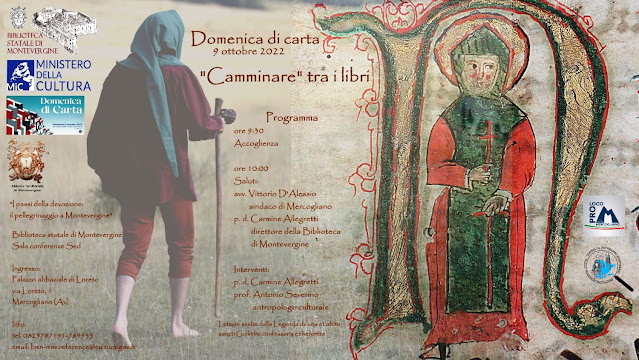 BIBLIOTECA
STATALE DI
MONTEVERGINE
MiC
MINISTERO
DELLA
CULTURA
Domenica
di Carta
Abbazia Territoriale
di Montevergine
"I passi della devozione:
il pellegrinaggio a Montevergine"
Biblioteca statale di Montevergine
Sala conferenze Sed
Ingresso:
Palazzo abbaziale di Loreto
via Loreto, 1
Mercogliano (Av)
Info:
tel. 0825787191-789933
email: bmn-mnv.reference@cultura.gov.it
Domenica di carta
9 ottobre 2022
"Camminare" tra i libri
Programma
ore 9:30
Accoglienza
ore 10:00
Saluti:
avv. Vittorio D'Alessio
sindaco di Mercogliano
p. d. Carmine Allegretti
direttore della Biblioteca
di Montevergine
Interventi:
p. d. Carmine Allegretti
prof. Antonio Severino
antropologo culturale
Letture scelte dalla Legenda de vita et obitu
sancti Guilielmi confessoris et heremite
PRO
LOCO
MERCOGLIANO